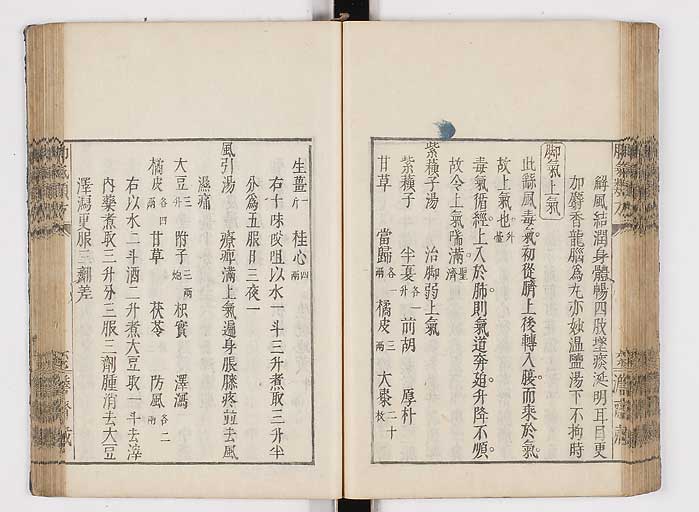 解風結潤身體暢四肢墜痰涎明耳目更
加麝香龍腦為丸亦妙溫鹽湯下不拘時
脚氣上氣
此繇風毒氣初從臍上後轉入腹而乘於氣
故上氣也外臺
毒氣循經上入於肺則氣道奔廹升降不順
故令上氣喘滿聖濟
紫蘓子湯 治脚弱上氣
紫蘓子 半夏各一升 前胡 厚朴
甘草 當歸各一兩 橘皮三兩 大棗二十枚
生薑一斤 桂心四兩
右十味㕮咀以水一斗三升煮取三升半
分為五服日三夜一
風引湯 療痹滿上氣遍身脹膝疼並去風
濕痛
大豆三升 附子三兩炮 枳實 澤瀉
橘皮各四兩 甘草 茯苓 防風各二兩
右以水二斗酒二升煮大豆取一斗去滓
內藥煮取三升分三服三劑腫消去大豆
澤瀉更服三劑差
脚氣類方